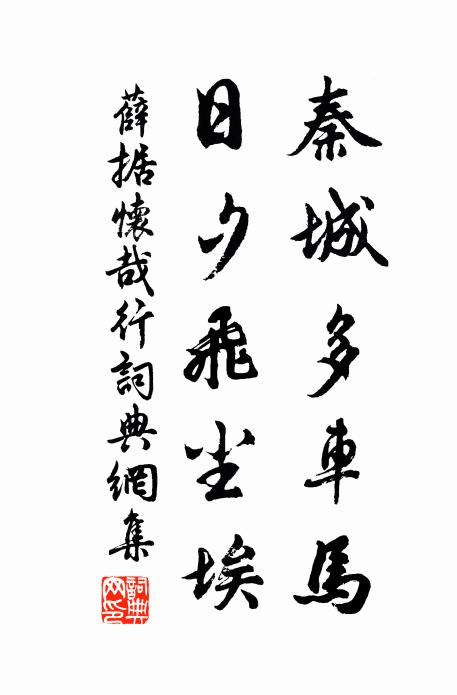 秦城多車馬
日夕飛尘埃
薛据懷哉行詞典網集
詞典
网印